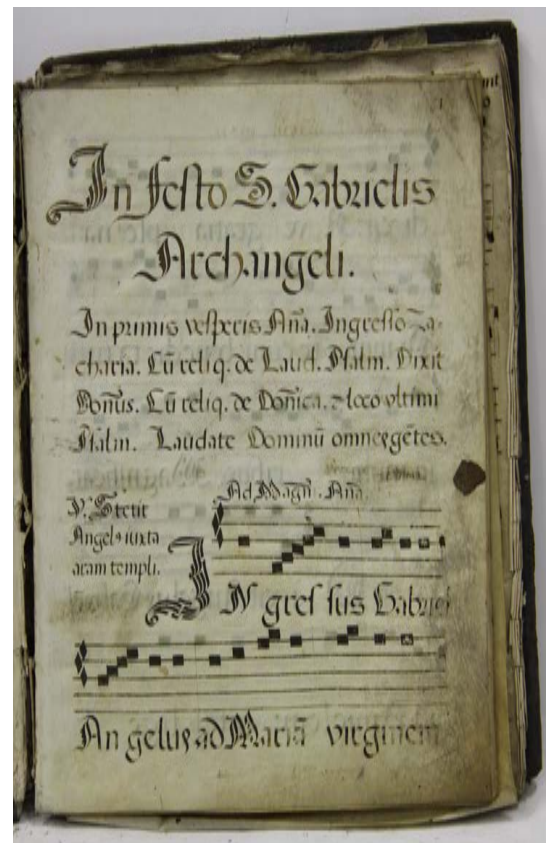 In festo S. Gabrielis
Archangeli.
In primis vesperis Aña. Ingresso Za-
charia. Cũ reliq. de Laud. Psalm. Dixit
Doñus. Cũ reliq. de Doñica. & loco ultimi
Psalm. Laudate Dominũ omnes gẽtes.
V. Stetit
Angelꝰ iuxta
aram templi.
Ad Magñ. Aña.
IN gres sus Gabriel
An gelus ad Mariã virginem